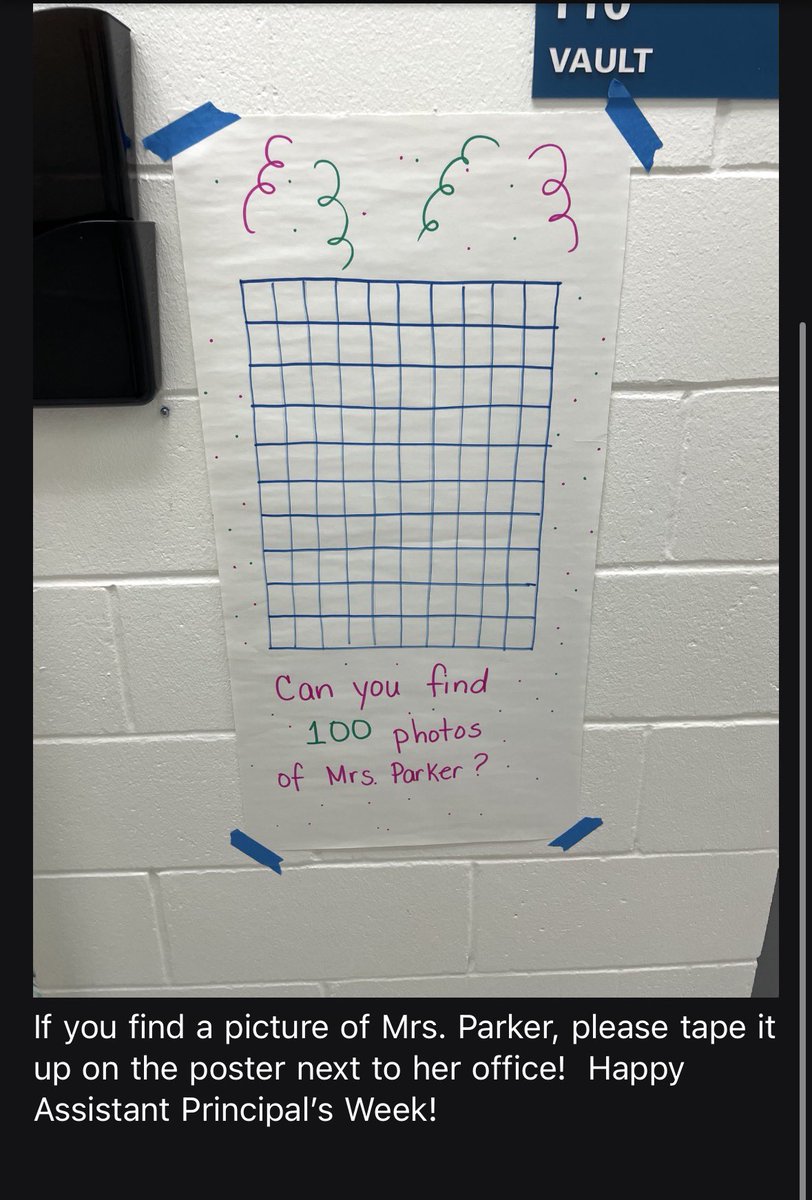 VAULT
Can you find
100 photos
of Mrs. Parker?
If you find a picture of Mrs. Parker, please tape it
up on the poster next to her office!  Happy
Assistant Principal’s Week!